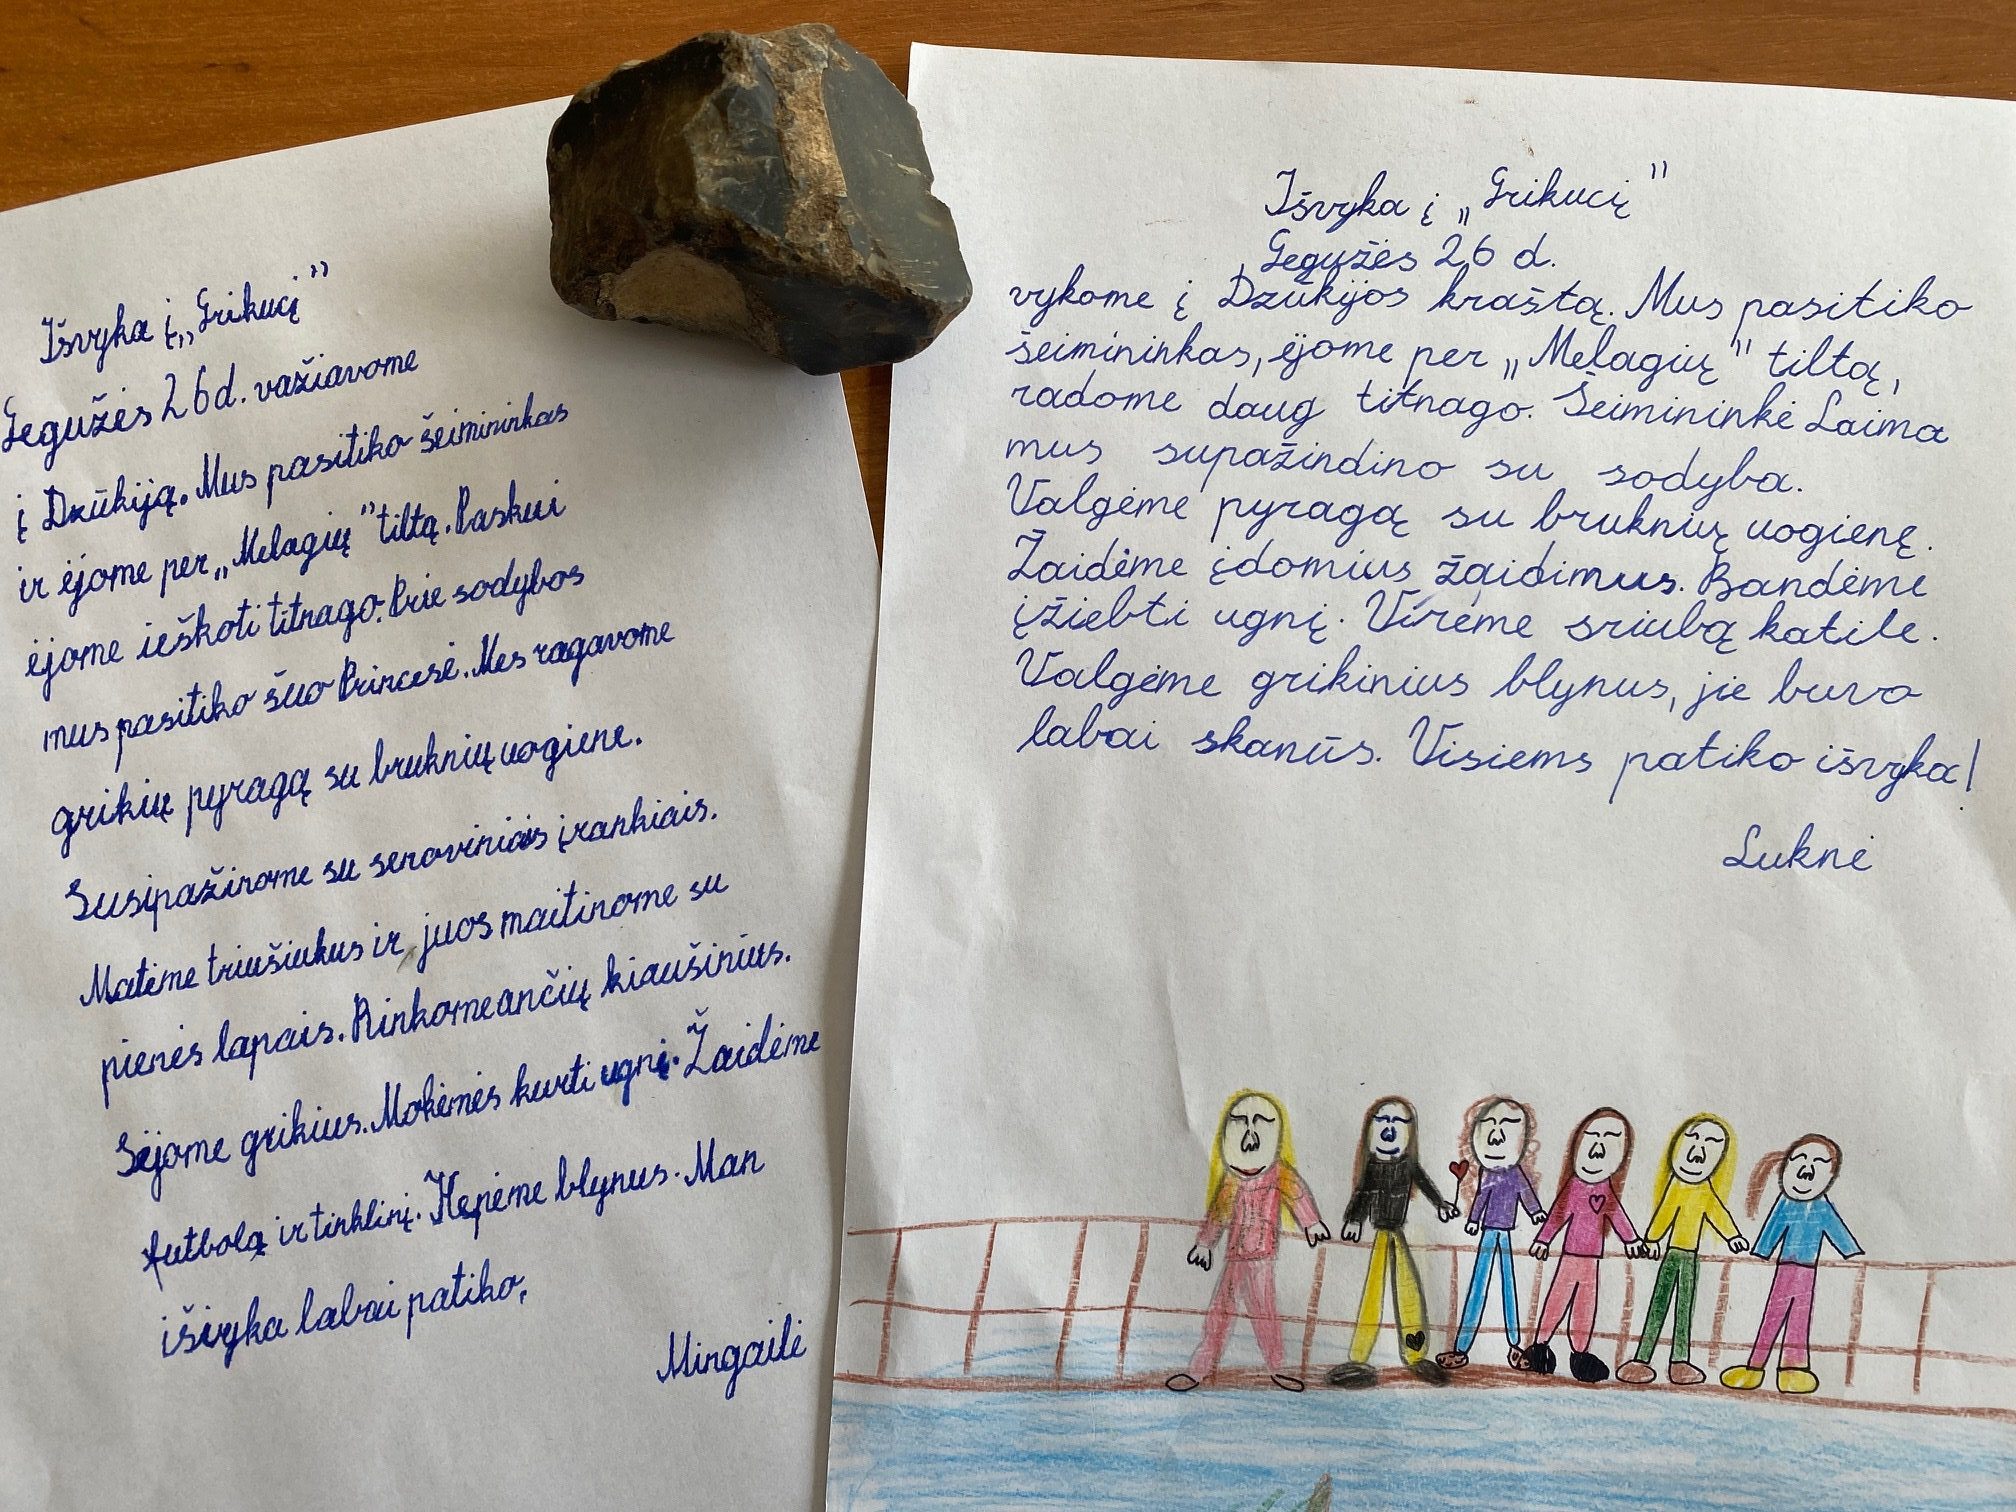 Išvyka į „Grikucį"
Gegužės 26 d. važiavome
į Dzūkiją. Mus pasitiko šeimininkas
ir ėjome per „Melagių" tiltą. Paskui
ėjome ieškoti titnago. Prie sodybos
mus pasitiko šuo Princesė. Mes ragavome
grikių pyragą su bruknių uogiene.
Susipažinome su senoviniais įrankiais.
Matėme triušiukus ir juos maitinome su
pienės lapais. Rinkome ančių kiaušinius.
Sėjome grikius. Mokėmės kurti ugnį. Žaidėme
futbolą ir tinklinį. Kepėme blynus. Man
išvyka labai patiko.
Mingailė
Išvyka į „Grikucį"
Gegužės 26 d.
vykome į Dzūkijos kraštą. Mus pasitiko
šeimininkas, ėjome per „Melagių" tiltą,
radome daug titnago. Šeimininkė Laima
mus supažindino su sodyba.
Valgėme pyragą su bruknių uogienę.
Žaidėme įdomius žaidimus. Bandėme
įžiebti ugnį. Virėme sriubą katile.
Valgėme grikinius blynus, jie buvo
labai skanūs. Visiems patiko išvyka!
Luknė